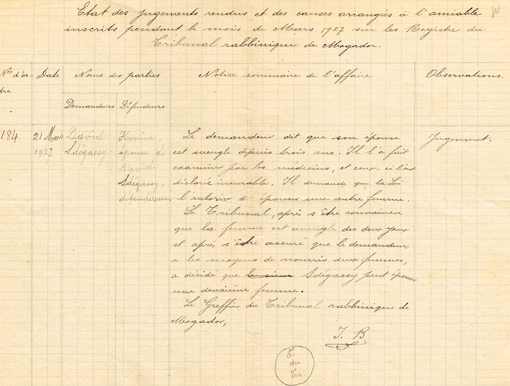 Etat des jugements rendus et des causes arrangées à l'amiable
inscrits pendant le mois de Mars 1927 sur les Registre du
Tribunal rabbinique de Mogador.
Nos d'or-
dre
Date
Noms des parties
Notice sommaire de l'affaire
Observations.
Demandeurs Défendeurs
184
21 Mars
1927
David
Sdégassy
épouse de
David
Sdégassy,
défenderesse
Le demandeur dit que son épouse
est aveugle depuis trois ans. Il l'a fait
examiner par les médecins, et ceux-ci l'ont
déclaré incurable. Il demande que la Loi
l'autorise à épouser une autre femme.
Le Tribunal, après s'être convaincu
que la femme est aveugle des deux yeux
et après s'être assuré que le demandeur
a les moyens de nourrir deux femmes,
a décidé que le sieur Sdégassy peut épouser
une deuxième femme.
Le Greffier du Tribunal rabbinique de
Mogador,
Jugement.
J. B